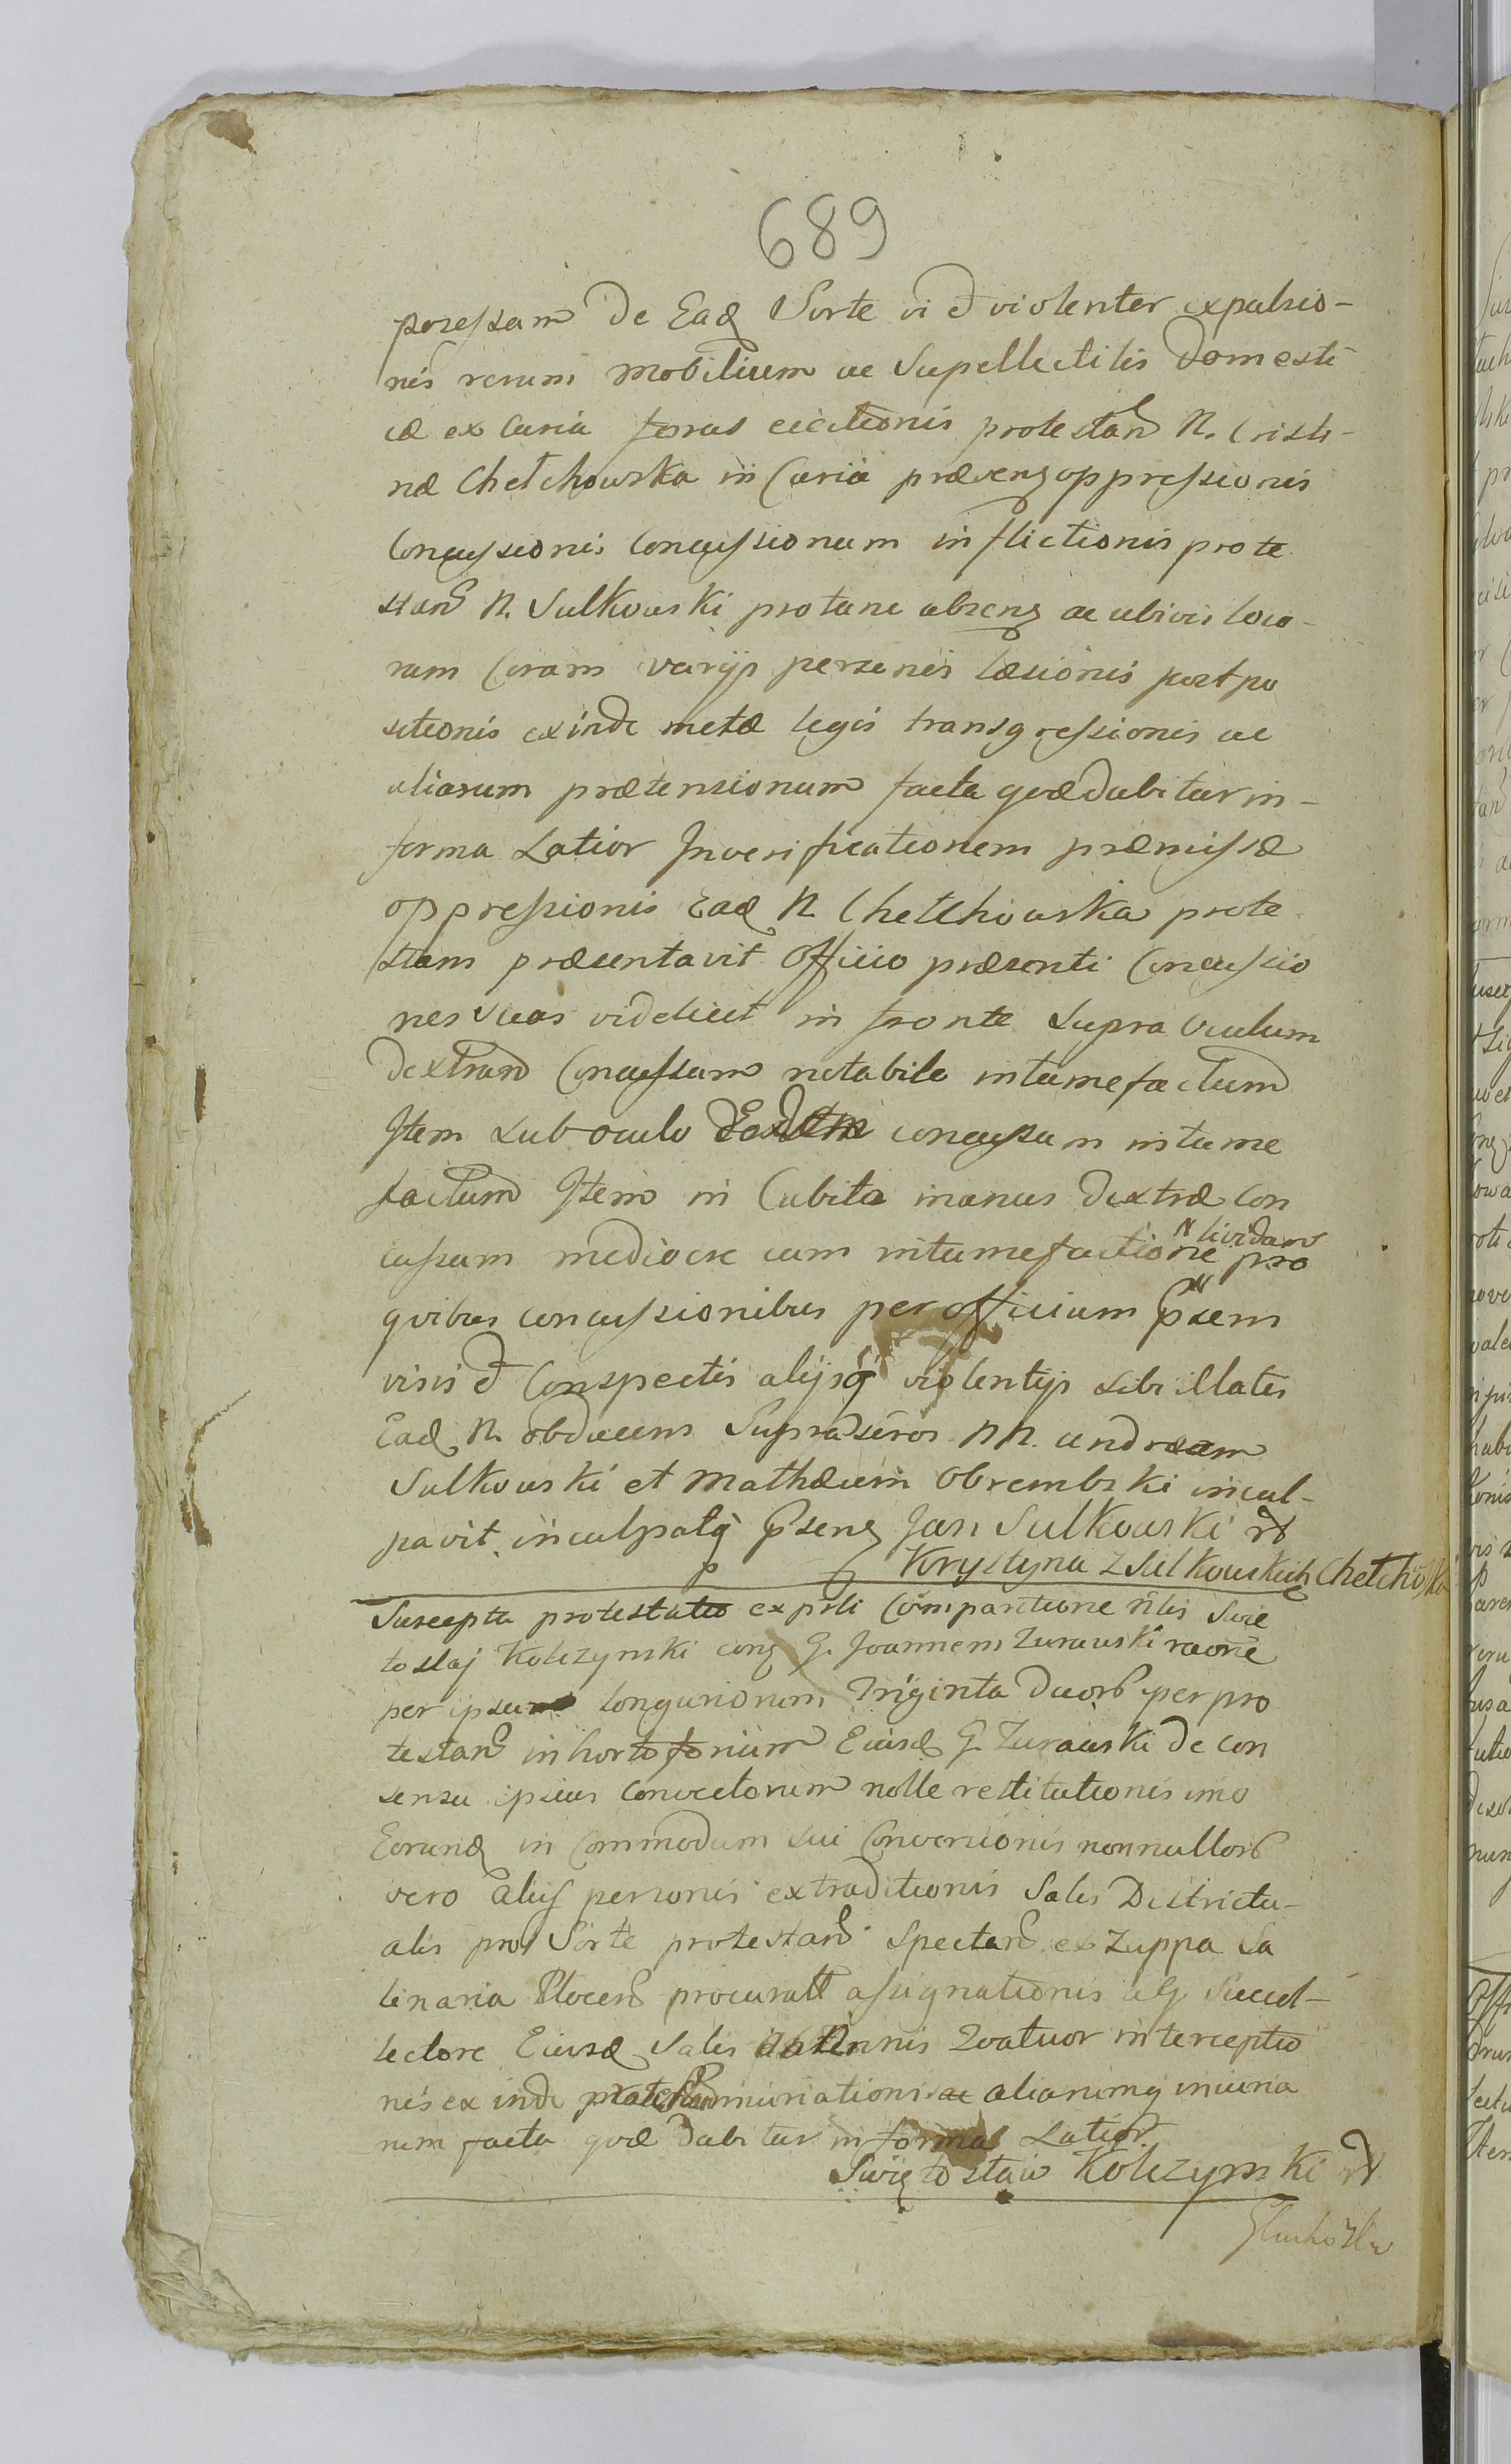 689
posessam de Eadē Sorte vi et violenter expulsio-
nis rerum mobilium ac Supellectilis domesti
cæ ex Curia foras eiectionis protestan N. Cristi-
næ Chełchowska in Curia præveng oppressionis
Concussionis Concussionum inflictionis prote
stan N. Sulkowski protunc absenz ac ubivis loco-
rum Coram varijs personis læsionis postpo
sitionis exinde metæ legis transgressionis ac
aliarum prætensionum facta quæ dabitur in-
forma Latior Inverificationem præmissæ
oppressionis Eadē N Chełchowska prote
stans præsentavit Officio præsenti Concussio
nes suas videlicet in fronte supra Oculum
dextrum Concussum notabile intumefactum
Item sub oculo Eodem concussum intume
factum Item in Cubito manus dextræ con
cussum mediocre cum intumefactione " lividum pro
quibus concussionibus per officium Pn̄sens
visis et Conspectis alijsq violentijs sibi illatis
Eadē N. obducens Supra N N. andream
Sulkowski et Mathæum Obrembski incul-
pavit inculpatq Pn̄senz Jan Sulkowski
Krystyna z Sulkowskich Chełchowska
Suscepta protestatio ex prsli Comparitione Nlis Swie
toslaj Kolczynski cong G. Joannem Zurawski raone
per ipsum longuriorum Triginta duorb per pro
testan in horto Eiusd G. Zurawski de con
sensu ipsius convectorum nolle restitutionis imo
Eorund in Commodum sui Conversionis nonnullorb
vero alijs personis extraditionis Salis Districtu-
alis pro Sorte protestan spectan ex Zuppa Sa
linaria Plocen procurat assignationis Succol-
lectore Eiusd Salis ab Annis Quatuor interceptio
nis ex inde aliarumq iniuria
rum facta quæ dabitur in forma Latior.
Swiętosław Kolczynski